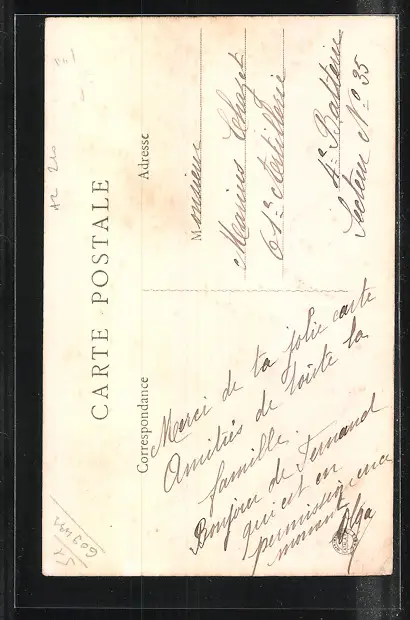 CARTE POSTALE
Correspondance
Adresse
Merci de ta jolie carte
Amitiés de toute la
famille.
Bonjour de Fernand
qui est en
permission en ce
moment
Olga
Monsieur
Marius Chazet
61e Artillerie
4e Batterie
Secteur No 35
609491